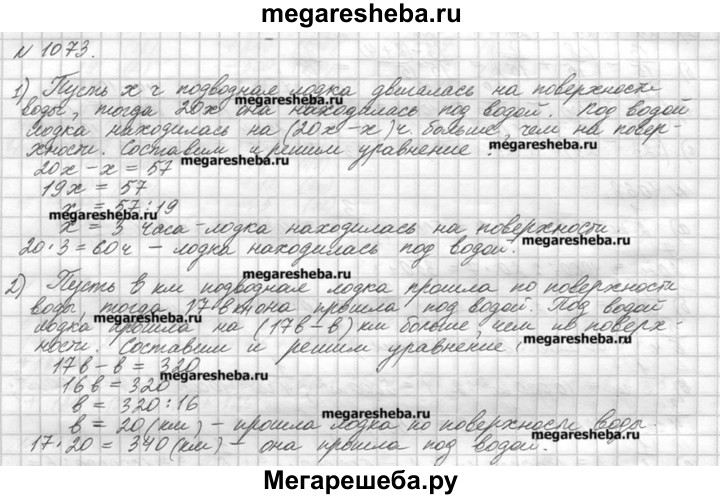 megaresheba.ru
N 1073.
1) Пусть x ч подводная лодка двигалась на поверхности
воды, тогда 20x она находилась под водой. Под водой
megaresheba.ru
лодка находилась на (20x-x)ч. больше, чем на повер-
хности. Составим и решим уравнение:
megaresheba.ru
megaresheba.ru
20x-x=57
19x=57
x=57:19
megaresheba.ru
x=3 часа-лодка находилась на поверхности.
megaresheba.ru
20·3=60ч - лодка находилась под водой.
megaresheba.ru
2) Пусть в км подводная лодка прошла по поверхности
воды, тогда 17в км она прошла под водой. Под водой
megaresheba.ru
лодка прошла на (17в-в)км больше чем по поверх-
ности. Составим и решим уравнение:
megaresheba.ru
17в-в=320
megaresheba.ru
16в=320
в=320:16
megaresheba.ru
в=20(км) - прошла лодка по поверхности воды.
17·20=340(км) - она прошла под водой.
megaresheba.ru
Мегарешеба.ру